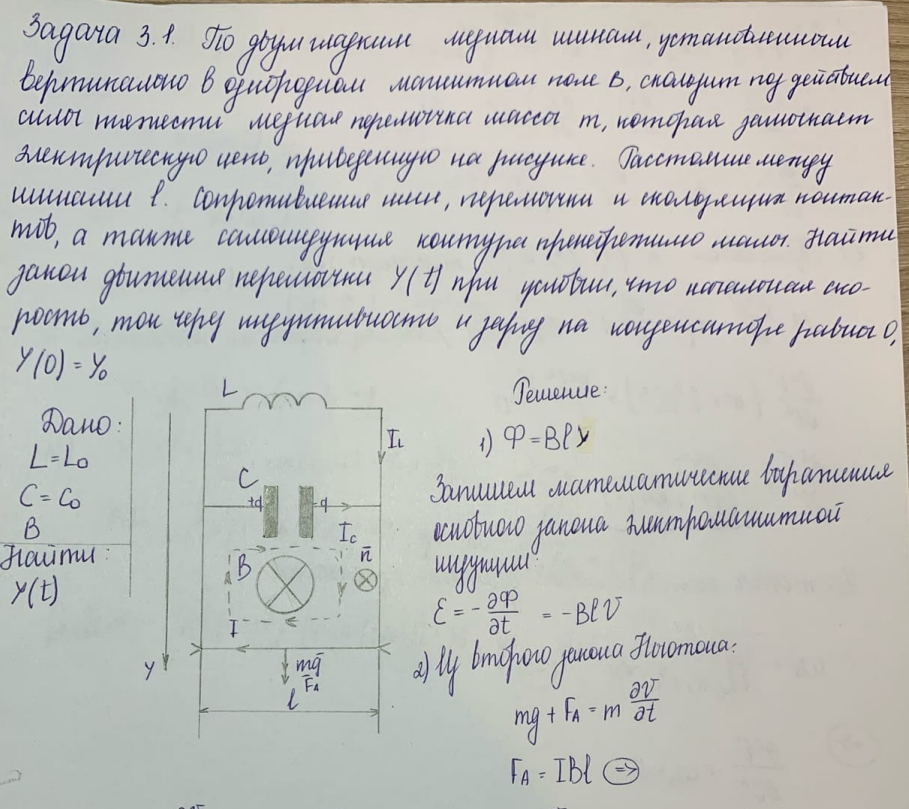 Задача 3.1. По двум гладким медным шинам, установленным
вертикально в однородном магнитном поле B, скользит под действием
силы тяжести медная перемычка массы m, которая замыкает
электрическую цепь, приведенную на рисунке. Расстояние между
шинами l. Сопротивления шин, перемычки и скользящих контак-
тов, а также самоиндукция контура пренебрежимо малы. Найти
закон движения перемычки Y(t) при условии, что начальная ско-
рость, ток через индуктивность и заряд на конденсаторе равны 0,
Y(0) = Y₀
Дано:
L=L₀
C=C₀
B
Найти:
Y(t)
L
I_L
C
+q
-q
I_C
B
n̄
I
Y
mḡ
F̄_A
l
Решение:
1) Ф = Bly
Запишем математические выражения
основного закона электромагнитной
индукции:
Ɛ = - ∂Ф/∂t = -BlV
2) Из второго закона Ньютона:
mg + F_A = m ∂V/∂t
F_A = IBl ⇒